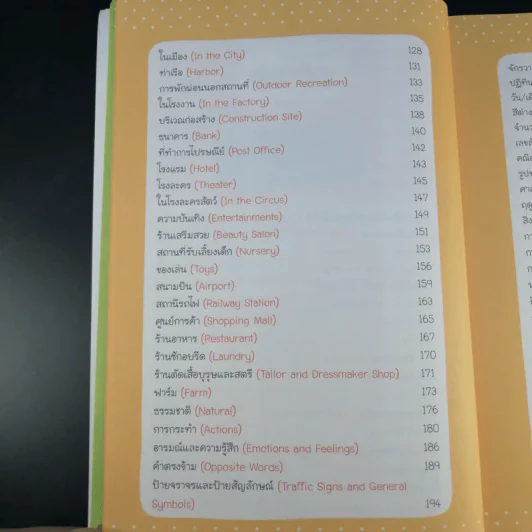 ในเมือง (In the City) 128
ท่าเรือ (Harbor) 131
การพักผ่อนนอกสถานที่ (Outdoor Recreation) 133
ในโรงงาน (In the Factory) 135
บริเวณก่อสร้าง (Construction Site) 138
ธนาคาร (Bank) 140
ที่ทำการไปรษณีย์ (Post Office) 142
โรงแรม (Hotel) 143
โรงละคร (Theater) 145
ในโรงละครสัตว์ (In the Circus) 147
ความบันเทิง (Entertainments) 149
ร้านเสริมสวย (Beauty Salon) 151
สถานที่รับเลี้ยงเด็ก (Nursery) 153
ของเล่น (Toys) 156
สนามบิน (Airport) 159
สถานีรถไฟ (Railway Station) 163
ศูนย์การค้า (Shopping Mall) 165
ร้านอาหาร (Restaurant) 167
ร้านซักอบรีด (Laundry) 170
ร้านตัดเสื้อบุรุษและสตรี (Tailor and Dressmaker Shop) 171
ฟาร์ม (Farm) 173
ธรรมชาติ (Natural) 176
การกระทำ (Actions) 180
อารมณ์และความรู้สึก (Emotions and Feelings) 186
คำตรงข้าม (Opposite Words) 189
ป้ายจราจรและป้ายสัญลักษณ์ (Traffic Signs and General
Symbols) 194